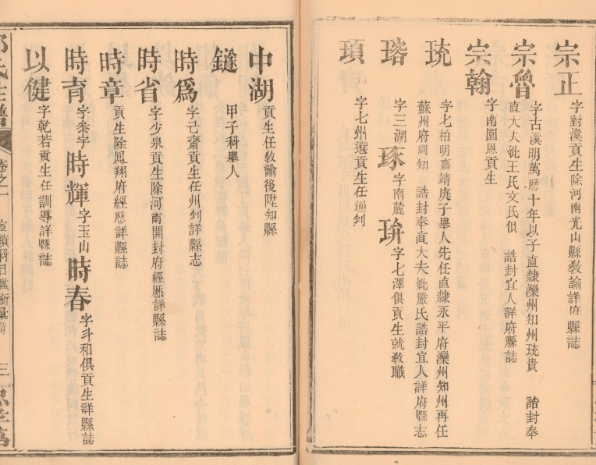 宗正 字對溪貢生除河南光山縣教諭詳府縣志
宗魯 字古溪明萬曆十年以子直隸灤州知州珫貴 誥封奉
直大夫妣王氏文氏俱 誥封宜人詳府縣志
宗翰 字南園恩貢生
珫 字七柏明嘉靖庚子舉人先任直隸永平府灤州知州再任
蘇州府同知 誥封奉直大夫妣嚴氏誥封宜人詳府縣志
瑹 字三湖 琢 字南麓 珤 字七澤俱貢生就教職
頊 字七州選貢生任通判
中湖 貢生任教諭後陞知縣
鐩 甲子科舉人
時為 字己齋貢生任州判詳縣志
時省 字少泉貢生除河南開封府經歷詳縣誌
時章 貢生除鳳翔府經歷詳縣誌
時育 字泰宇 時輝 字玉山 時春 字斗和俱貢生詳縣誌
以健 字乾若貢生任訓導詳縣誌
氏世譜 卷之一
三